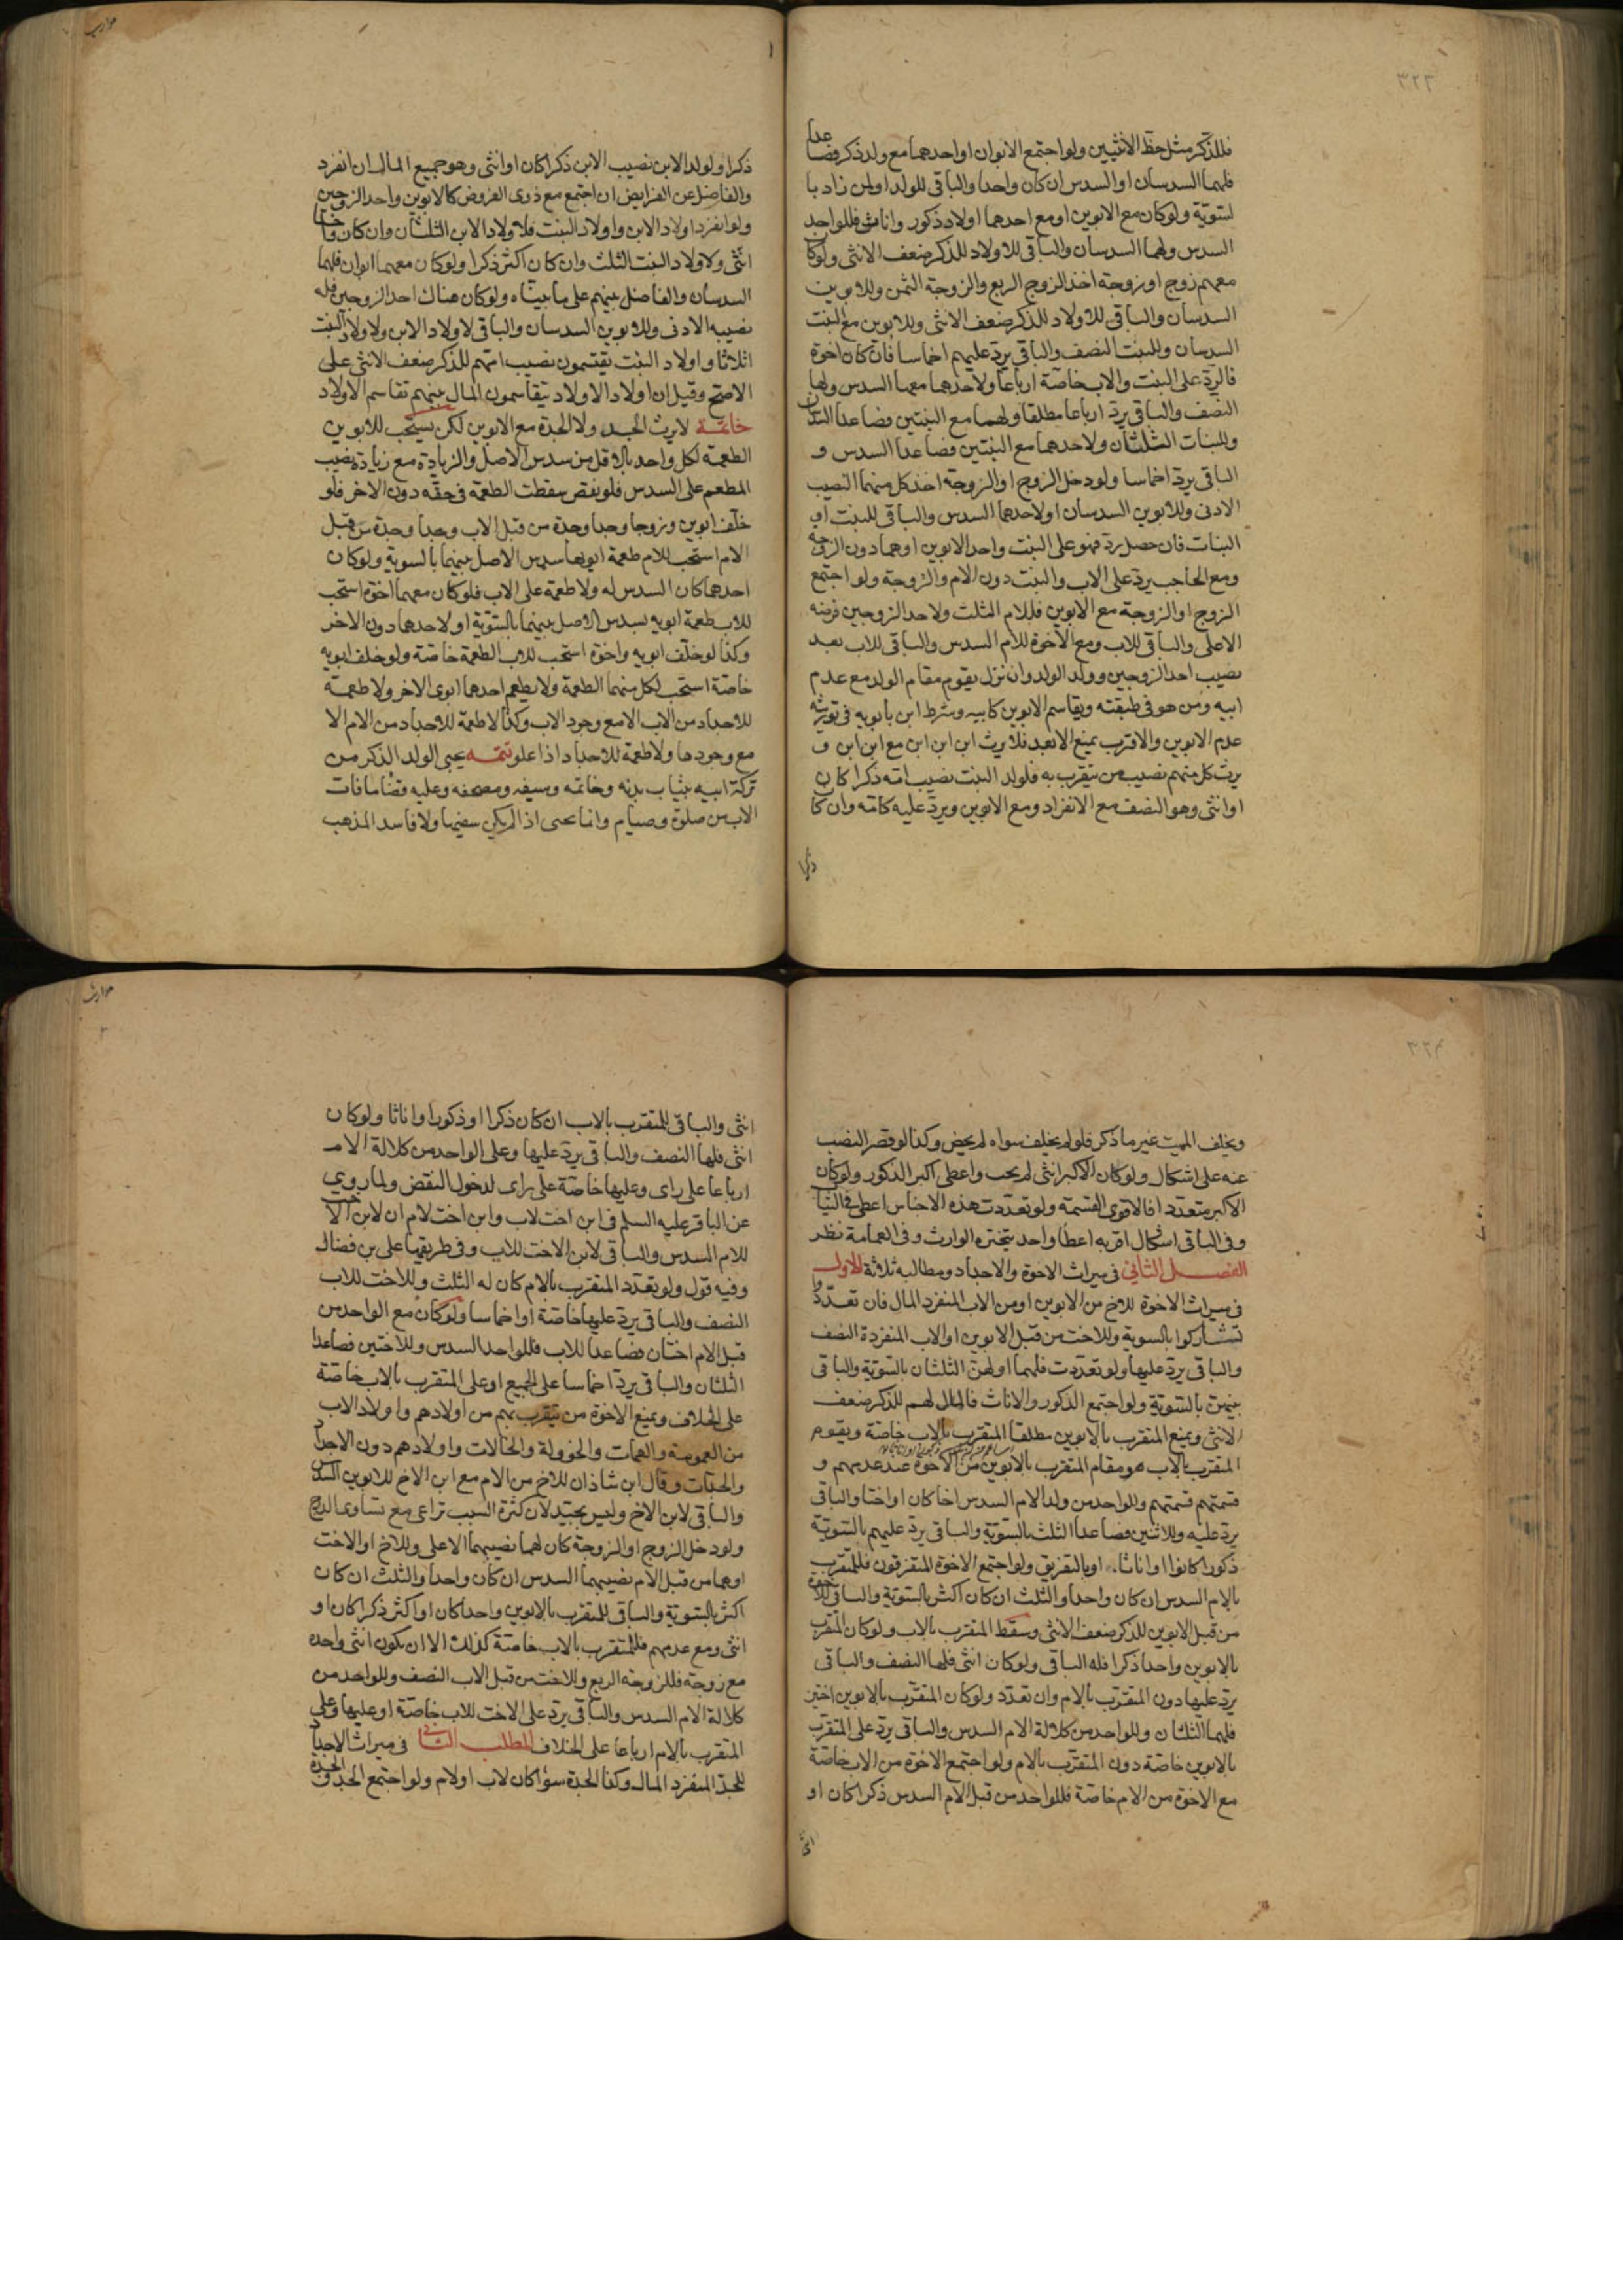 ٣٢٣
فللذكر مثل حظ الانثيين ولو اجتمع الابوان او احدهما مع ولد ذكر فصاعدا
فلهما السدسان او السدس ان كان واحدا والباقى للولد او لمن زاد با
لسوية ولو كان مع الابوين او مع احدهما اولاد ذكور واناث فللواحد
السدس ولهما السدسان والباقى للاولاد للذكر ضعف الانثى ولو كا
معهم زوج او زوجة اخذ الزوج الربع والزوجة الثمن وللابوين
السدسان والباقى للاولاد للذكر ضعف الانثى وللابوين مع البنت
السدسان وللبنت النصف والباقى يرد عليهم اخماسا فان كان اخوة
فالرد على البنت والاب خاصة ارباعا ولاحدهما معها السدس ولها
النصف والباقى يرد ارباعا مطلقا ولهما مع البنتين فصاعدا السدسان
وللبنات الثلثان ولاحدهما مع البنتين فصاعدا السدس و
الباقى يرد اخماسا ولو دخل الزوج او الزوجة اخذ كل منهما النصيب
الادنى وللابوين السدسان او لاحدهما السدس والباقى للبنت او
البنات فان حصل رد فهو على البنت واحد الابوين او هما دون الزوجة
ومع الحاجب يرد على الاب والبنت دون الام والزوجة ولو اجتمع
الزوج او الزوجة مع الابوين فللام الثلث ولاحد الزوجين فرضه
الاعلى والباقى للاب ومع الاخوة للام السدس والباقى للاب بعد
نصيب احد الزوجين وولد الولد وان نزل يقوم مقام الولد مع عدم
ابيه ومن هو فى طبقته ويقاسم الابوين كابيه وشرط ابن بابويه فى توريثه
عدم الابوين والاقرب يمنع الابعد فلا يرث ابن ابن ابن مع ابن ابن و
يرث كل منهم نصيب من يتقرب به فلولد البنت نصيب امه ذكرا كان
او انثى وهو النصف مع الانفراد ومع الابوين ويرد عليه كامه وان كا
ذكرا
مواريث
ذكرا ولولد الابن نصيب الابن ذكرا كان او انثى وهو جميع المال ان انفرد
والفاضل عن الفرايض ان اجتمع مع ذوى الفروض كالابوين واحد الزوجين
ولو انفرد اولاد الابن واولاد البنت فلاولاد الابن الثلثان وان كان واحدا
انثى ولاولاد البنت الثلث وان كان اكثر ذكرا ولو كان معهما ابوان فلهما
السدسان والفاضل بينهم على ما بيناه ولو كان هناك احد الزوجين فله
نصيبه الادنى وللابوين السدسان والباقى لاولاد الابن ولاولاد البنت
اثلاثا واولاد البنت يقتسمون نصيب امهم للذكر ضعف الانثى على
الاصح وقيل ان اولاد الاولاد يتقاسمون المال بينهم تقاسم الاولاد
خاتمة لا يرث الجد ولا الجدة مع الابوين لكن يستحب للابوين
الطعمة لكل واحد بالاقل من سدس الاصل والزيادة مع زيادة نصيب
المطعم على السدس فلو نقص سقطت الطعمة فى حقه دون الاخر فلو
خلف ابوين وزوجا وجدا وجدة من قبل الاب وجدا وجدة من قبل
الام استحب للام طعمة ابويها سدس الاصل بينهما بالسوية ولو كان
احدهما كان السدس له ولا طعمة على الاب فلو كان معهما اخوة استحب
للاب طعمة ابويه بسدس الاصل بينهما بالسوية او لاحدهما دون الاخر
وكذا لو خلف ابويه واخوة استحب للاب الطعمة خاصة ولو خلف ابويه
خاصة استحب لكل منهما الطعمة ولا يطعم احدهما ابوى الاخر ولا طعمة
للاجداد من الاب الا مع وجود الاب وكذا لا طعمة للاجداد من الام الا
مع وجودها ولا طعمة للاجداد اذا علو تتمه يحبى الولد الذكر من
تركة ابيه بثياب بدنه وخاتمه وسيفه ومصحفه وعليه قضا ما فات
الاب من صلوة وصيام وانما يحبى اذا لم يكن سفيها ولا فاسد المذهب
٣٢٤
ويخلف الميت غير ما ذكر فلو لم يخلف سواه لم يخص وكذا لو قصر النصيب
عنه على اشكال ولو كان الاكبر انثى لم يحب واعطى اكبر الذكور ولو كان
الاكبر متعددا فالاقوى القسمة ولو تعددت هذه الاجناس اعطى فى الثياب
وفى الباقى اشكال اقربه اعطا واحد يتخيره الوارث وفى العمامة نظر
الفصل الثانى فى ميراث الاخوة والاجداد ومطالبه ثلاثة الاول
فى ميراث الاخوة للاخ من الابوين او من الاب المنفرد المال فان تعددوا
تشاركوا بالسوية وللاخت من قبل الابوين او الاب المنفردة النصف
والباقى يرد عليها ولو تعددت فلهما او لهن الثلثان بالسوية والباقى
بينهن بالسوية ولو اجتمع الذكور والاناث فالمال لهم للذكر ضعف
الانثى ويمنع المتقرب بالابوين مطلقا المتقرب بالاب خاصة ويقوم
المتقرب بالاب هو مقام المتقرب بالابوين من الاخوة عند عدمهم و
قسمتهم قسمتهم وللواحد من ولد الام السدس اخا كان او اختا والباقى
يرد عليه وللاثنين فصاعدا الثلث بالسوية والباقى يرد عليهم بالسوية
ذكورا كانوا او اناثا او بالتفريق ولو اجتمع الاخوة المتفرقون فللمتقرب
بالام السدس ان كان واحدا والثلث ان كان اكثر بالسوية والباقى للاخوة
من قبل الابوين للذكر ضعف الانثى وسقط المتقرب بالاب ولو كان المتقرب
بالابوين واحدا ذكرا فله الباقى ولو كان انثى فلها النصف والباقى
يرد عليها دون المتقرب بالام وان تعدد ولو كان المتقرب بالابوين اختين
فلهما الثلثان وللواحد من كلالة الام السدس والباقى يرد على المتقرب
بالابوين خاصة دون المتقرب بالام ولو اجتمع الاخوة من الاب خاصة
مع الاخوة من الام خاصة فللواحد من قبل الام السدس ذكرا كان او
انثى
مواريث
انثى والباقى للمتقرب بالاب ان كان ذكرا او ذكورا واناثا ولو كان
انثى فلها النصف والباقى يرد عليها وعلى الواحد من كلالة الام
ارباعا على راى وعليها خاصة على راى لدخول النقص ولما روى
عن الباقر عليه السلم فى ابن اخت لاب وابن اخت لام ان لابن الاخت
للام السدس والباقى لابن الاخت للاب وفى طريقها على بن فضال
وفيه قول ولو تعدد المتقرب بالام كان له الثلث وللاخت للاب
النصف والباقى يرد عليها خاصة او اخماسا ولو كان مع الواحد من
قبل الام اختان فصاعدا للاب فللواحد السدس وللاختين فصاعدا
الثلثان والباقى يرد اخماسا على الجميع او على المتقرب بالاب خاصة
على الخلاف ويمنع الاخوة من يتقرب بهم من اولادهم واولاد الاب
من العمومة والعمات والخؤولة والخالات واولادهم دون الاجداد
والجدات وقال ابن شاذان للاخ من الام مع ابن الاخ للابوين السدس
والباقى لابن الاخ وليس بجيد لان كثرة السبب تراعى مع تساوى الدرج
ولو دخل الزوج او الزوجة كان لهما نصيبهما الاعلى وللاخ او الاخت
او هما من قبل الام نصيبهما السدس ان كان واحدا والثلث ان كان
اكثر بالسوية والباقى للمتقرب بالابوين واحدا كان او اكثر ذكرا كان او
انثى ومع عدمهم فللمتقرب بالاب خاصة كذلك الا ان يكون انثى واحدة
مع زوجة فللزوجة الربع وللاخت من قبل الاب النصف وللواحد من
كلالة الام السدس والباقى يرد على الاخت للاب خاصة او عليها وعلى
المتقرب بالام ارباعا على الخلاف المطلب الثانى فى ميراث الاجداد
للجد المنفرد المال وكذا الجدة سواء كان لاب او لام ولو اجتمع الجد والجدة